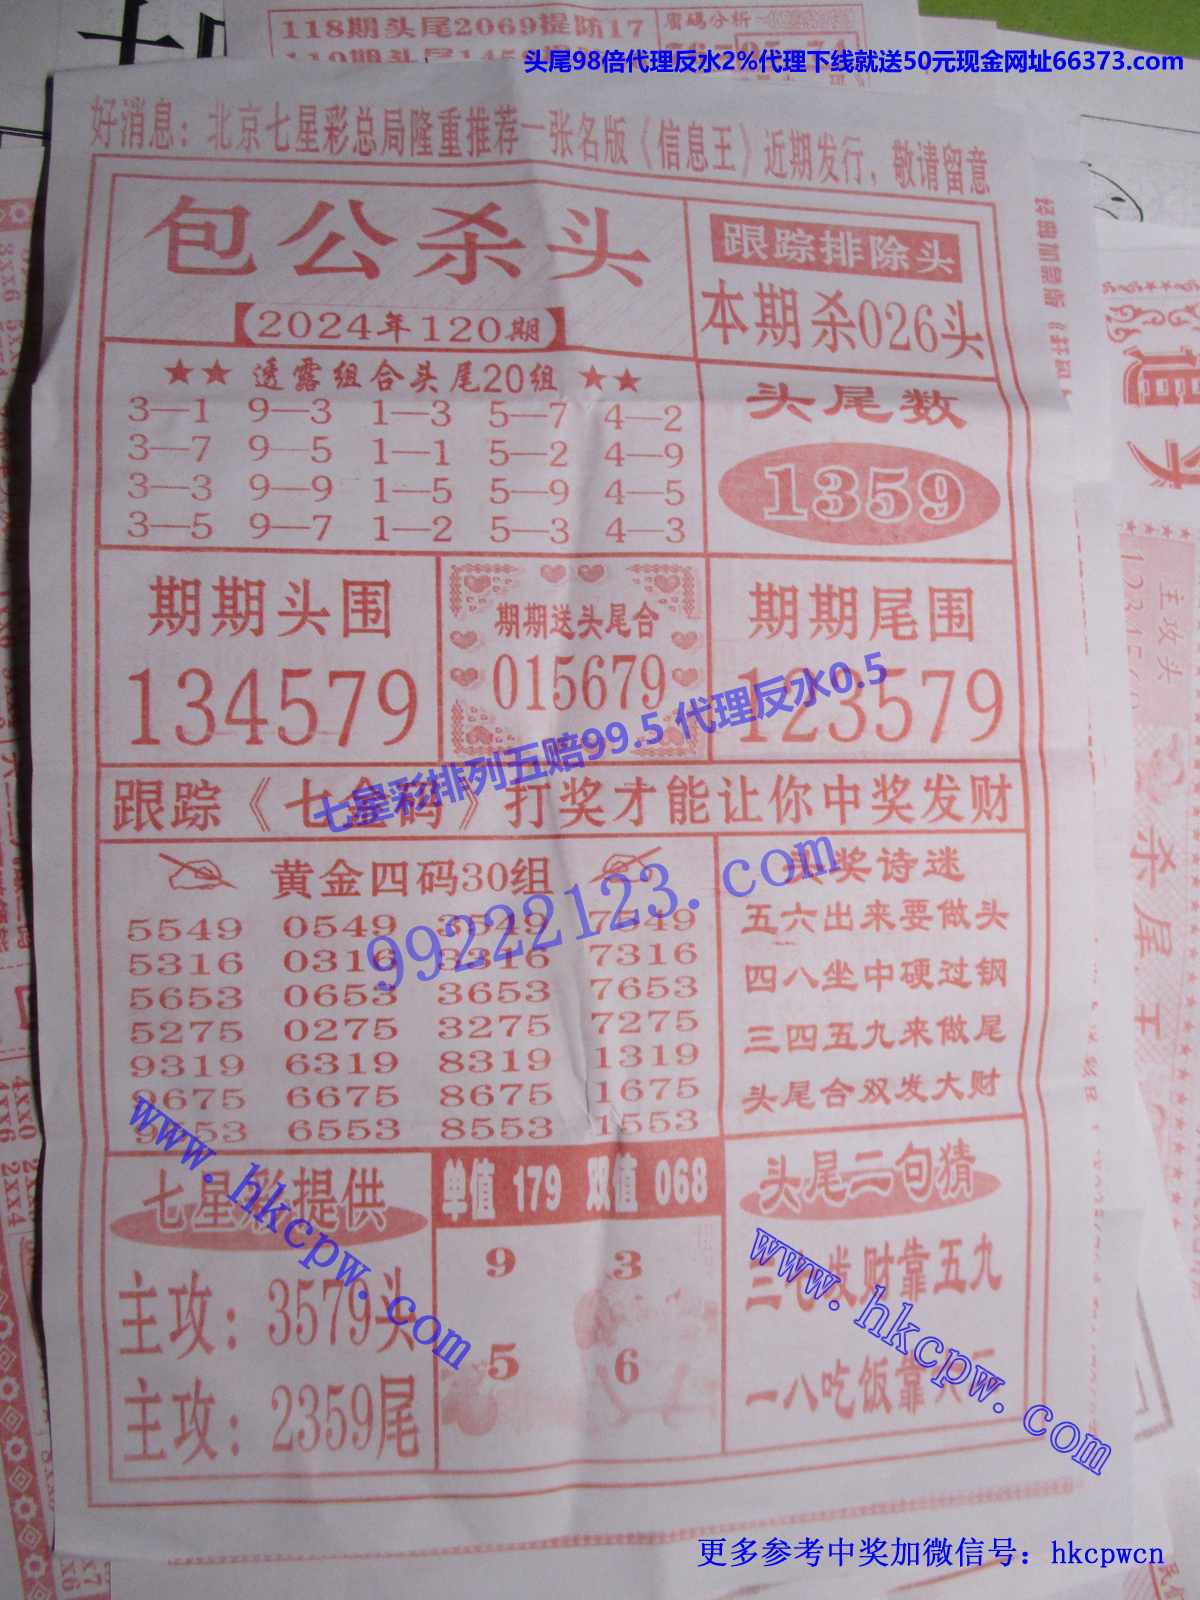 118期头尾2069提防17
密码分析
头尾98倍代理反水2%代理下线就送50元现金网址66373.com
好消息：北京七星彩总局隆重推荐一张名版《信息王》近期发行，敬请留意
包公杀头
【2024年120期】
跟踪排除头
本期杀026头
★★ 透露组合头尾20组 ★★
3—1 9—3 1—3 5—7 4—2
3—7 9—5 1—1 5—2 4—9
3—3 9—9 1—5 5—9 4—5
3—5 9—7 1—2 5—3 4—3
头尾数
1359
期期头围
134579
期期送头尾合
015679
期期尾围
123579
七星彩排列五赔99.5 代理反水0.5
跟踪《七金码》打奖才能让你中奖发财
黄金四码30组
5549 0549 3549 7549
5316 0316 3316 7316
5653 0653 3653 7653
5275 0275 3275 7275
9319 6319 8319 1319
9675 6675 8675 1675
6553 8553 1553
99222123.com
头奖诗迷
五六出来要做头
四八坐中硬过钢
三四五九来做尾
头尾合双发大财
www.hkcpw.com
七星彩提供
主攻：3579头
主攻：2359尾
单值 179 双值 068
9 3
5 6
头尾二句猜
三七发财靠五九
一八吃饭靠
www.hkcpw.com
主攻头
杀尾王
更多参考中奖加微信号：hkcpwcn